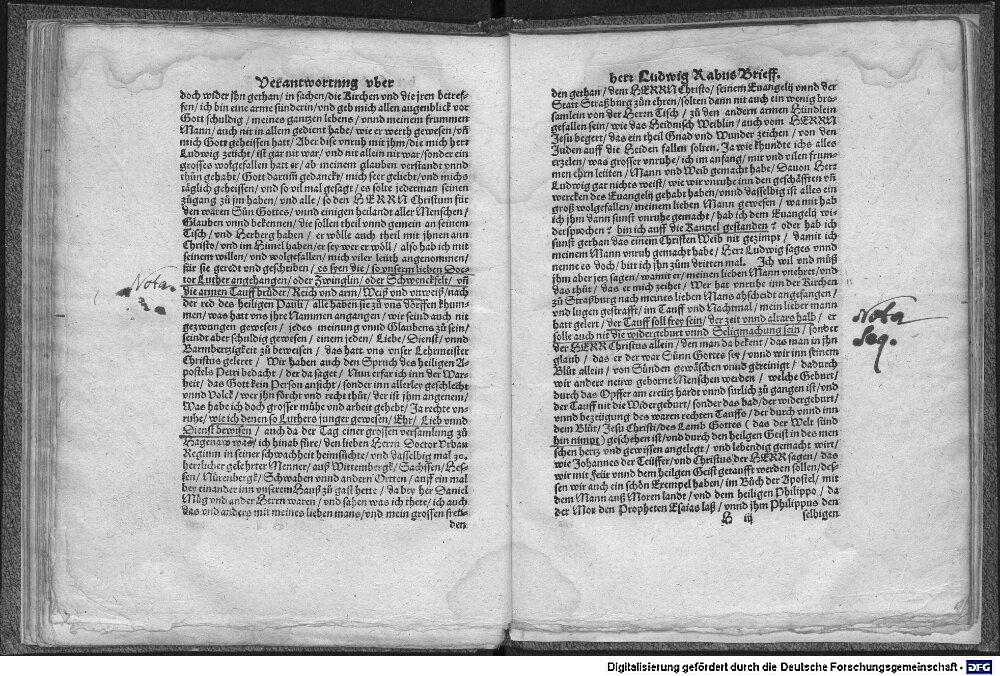 Verantwortung vber
doch wider jhn gethan / in sachen / die Kirchen vnd die jren betref-
fen / ich bin eine arme sünderin / vnd geb mich allen augenblick vor
Gott schuldig / meines gantzen lebens / vnnd meinem frummen
Mann / auch nit in allem gedient habe / wie er werth gewesen / vñ
mich Gott geheissen hatt / Aber dise vnruh mit jhm / die mich herr
Ludwig zeicht / ist gar nit war / vnd nit allein nit war / sonder ein
grosses wolgefallen hatt er / ab meinem glauben verstandt vnnd
thůn gehabt / Gott darumb gedanckt / mich seer geliebt / vnd michs
täglich geheissen / vnd so vil mal gesagt / es solte jederman seinen
zůgang zů jm haben / vnd alle / so den HERRN Christum für
den waren Sůn Gottes / vnnd einigen heilandt aller Menschen /
Glauben vnnd bekennen / die sollen theil vnnd gemein an seinem
Tisch / vnd Herberg haben / er wölle auch theil mit jhnen ann
Christo / vnd im Himel haben / er sey wer er wöll / also hab ich mit
seinem willen / vnd wolgefallen / mich viler leüth angenommen /
für sie geredt vnd geschriben / es syen die / so vnserm lieben Doc-
tor Luther angehangen / oder Zwinglin / oder Schwenckfelt / vñ
die armen Tauff brüder / Reich vnd arm / Weiß vnd vnweiß / nach
der red des heiligen Pauli / alle haben sie zů vns dörffen khum-
men / was hatt vns jhre Nammen angangen / wir seind auch nit
gezwungen gewesen / jedes meinung vnnd Glaubens zů sein /
seindt aber schuldig gewesen / einem jeden / Liebe / Dienst / vnnd
Barmhertzigkeit zů beweisen / das hatt vns vnser Lehrmeister
Christus geleret / Wir haben auch den Spruch des heiligen A-
postels Petri bedacht / der da saget / Nun erfar ich inn der War-
heit / das Gott kein Person ansicht / sonder inn allerley geschlecht
vnnd Volck / wer jhn förcht vnd recht thůt / der ist jhm angenem /
Was habe ich doch grosser mühe vnd arbeit gehebt / Ja rechte vn-
rühe / wie ich denen so Luthers junger gewesen / Ehr / Lieb vnnd
Dienst bewisen / auch da der Tag einer grossen versamlung zů
Hagenaw was / ich hinab füre / den lieben Herrn Doctor Vrban
Regium in seiner schwachheit heimsůchte / vnd dasselbig mal 20.
herrlicher gelehrter Menner / auß Wittembergk / Sachsen / Hes-
sen / Nürenbergk / Schwaben vnnd andern Orten / auff ein mal
bey einander inn vnserem Hauß zů gast hette / da bey her Daniel
Müg vnd ander Herrn waren / vnd sahen was ich thete / ich auch
das vnd anders mit meines lieben mans / vnd mein grossen freü-
den
Nota.
herr Ludwig Rabus Brieff.
den gethan / dem HERRN Christo / seinem Euangelij vnnd der
Statt Straßburg zů ehren / solten dann nit auch ein wenig bro-
samlein von der Herrn Tisch / zů den andern armen Hündlein
gefallen sein / wie das Heidnisch Weiblin / auch vom HERRN
Jesu begert / das ein theil Gnad vnd Wunder zeichen / von den
Juden auff die Heiden fallen solten. Ja wie khundte ichs alles
erzelen / was grosser vnruhe / ich im anfang / mit vnd vilen frum-
men ehrn leütten / Mann vnd Weib gemacht habe / Davon Herr
Ludwig gar nichts weißt / wie wir vnruhe inn den geschäfften vñ
wercken des Euangelij gehabt haben / vnnd dasselbig ist alles ein
groß wolgefallen / meinem lieben Mann gewesen / wa mit hab
ich jhm dann sunst vnruhe gemacht / hab ich dem Euangelij wi-
dersprochen? bin ich auff die Kantzel gestanden? oder hab ich
sunst gethan das einem Christen Weib nit gezimpt / damit ich
meinem Mann vnruh gemacht habe / Herr Ludwig sages vnnd
nenne es doch / bitt ich jhn zům dritten mal. Ich wil vnd můß
jhm aber jetz sagen / wamit er / meinen lieben Mann vnehret / vnd
das thůt / das er mich zeihet / Wer hat vnruhe inn der Kirchen
zů Straßburg nach meines lieben Mans abscheidt angefangen /
vnd lugen gestrafft / im Tauff vnd Nachtmal / mein lieber mann
hatt gelert / der Tauff soll frey sein / der zeit vnnd altars halb / er
solle auch nit die widergeburt vnnd Seligmachung sein / sonder
der HERR Christus allein / den man da bekent / das man in jhn
glaub / das er der war Sůnn Gottes sey / vnnd wir inn seinem
Blůt allein / von Sünden gewäschen vnnd gereinigt / dadurch
wir andere neüw geborne Menschen werden / welche Geburt /
durch das Opffer am creütz hardt vnnd sürlich zů gangen ist / vnd
der Tauff nit die Widergeburt / sonder das bad / der widergeburt /
vnnd bezeügung des waren rechten Tauffs / der durch vnnd inn
dem Blůt / Jesu Christi / des Lamb Gottes ( das der Welt sünd
hin nimpt ) geschehen ist / vnd durch den heilgen Geist in des men
schen hertz vnd gewissen angelegt / vnd lebendig gemacht wirt /
wie Johannes der Teüffer / vnd Christus der HERR sagen / das
wir mit Feür vnnd dem heilgen Geist getaufft werden sollen / des-
sen wir auch ein schön Exempel haben / im Bůch der Apostel / mit
dem Mann auß Moren landt / vnd dem heiligen Philippo / da
der Mor den Propheten Esaias laß / vnnd jhm Philippus den
B iij selbigen
Nota
seq.
Digitalisierung gefördert durch die Deutsche Forschungsgemeinschaft - DFG